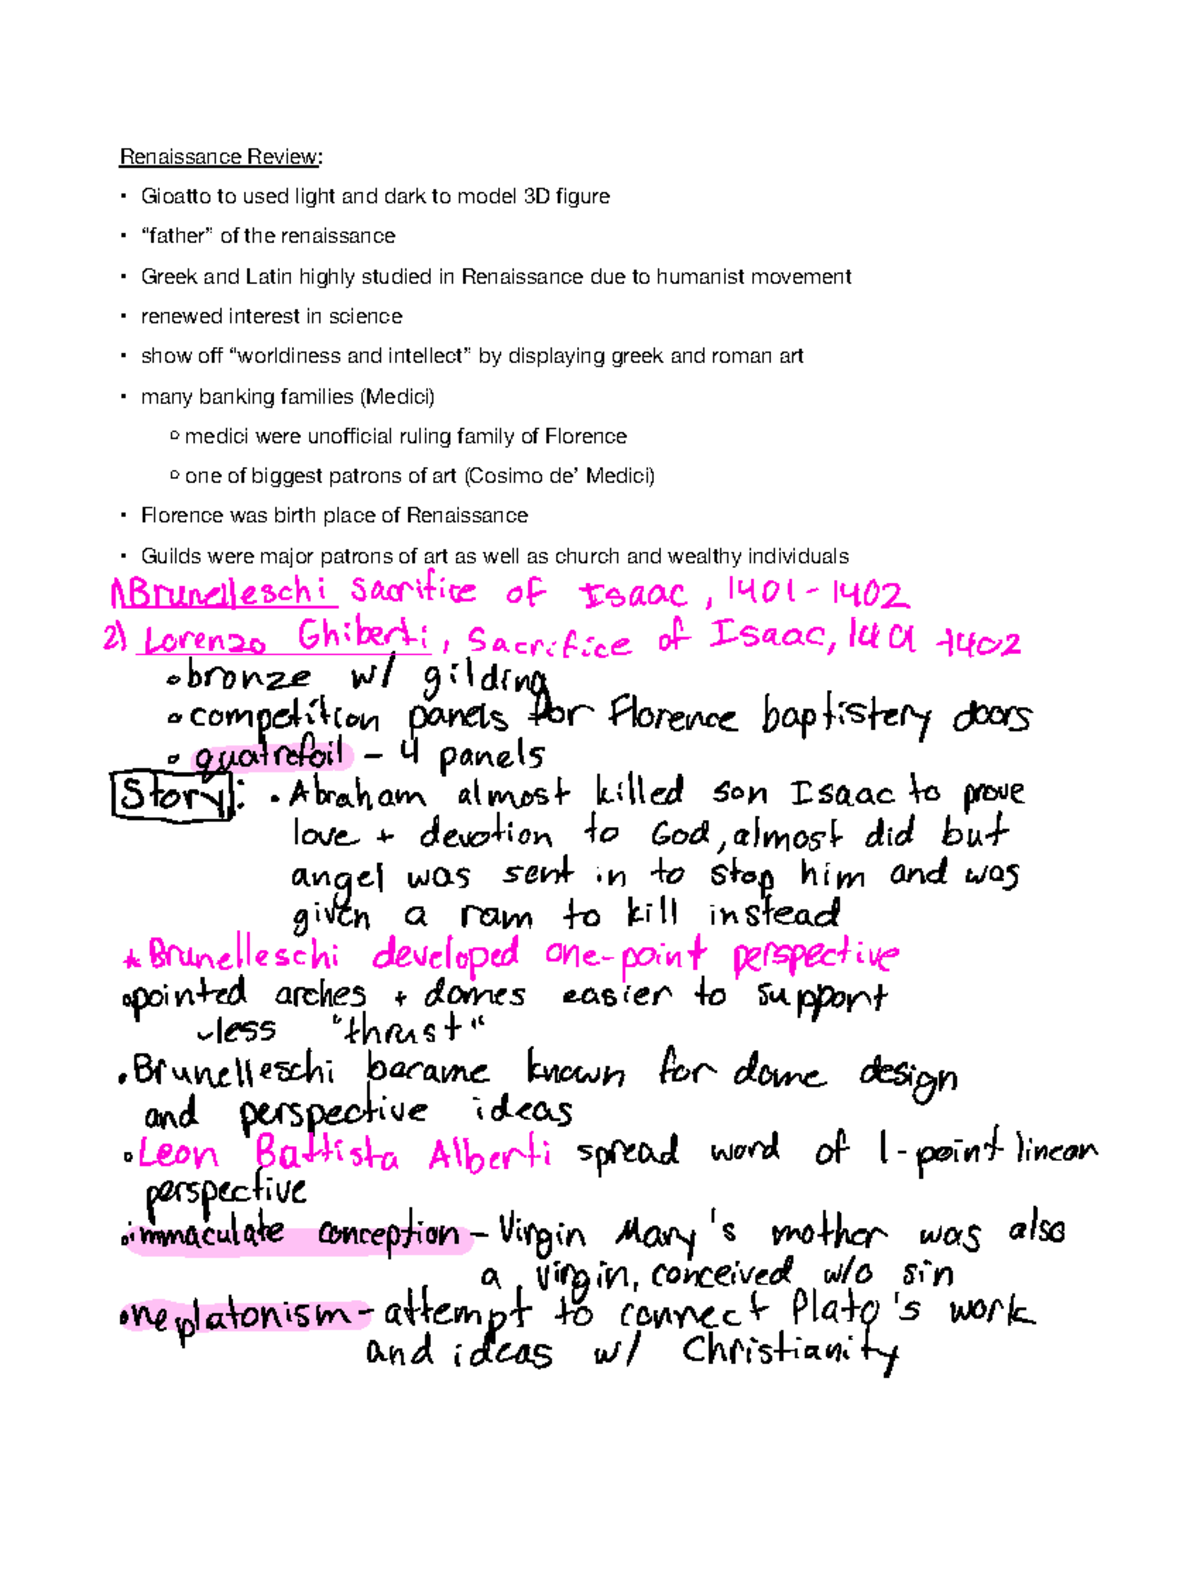 Renaissance Review:
• Gioatto to used light and dark to model 3D figure
• “father” of the renaissance
• Greek and Latin highly studied in Renaissance due to humanist movement
• renewed interest in science
• show off “worldiness and intellect” by displaying greek and roman art
• many banking families (Medici)
o medici were unofficial ruling family of Florence
o one of biggest patrons of art (Cosimo de’ Medici)
• Florence was birth place of Renaissance
• Guilds were major patrons of art as well as church and wealthy individuals
1) Brunelleschi Sacrifice of Isaac, 1401-1402
2) Lorenzo Ghiberti, Sacrifice of Isaac, 1401-1402
o bronze w/ gilding
o competition panels for Florence baptistery doors
o quatrefoil - 4 panels
Story: • Abraham almost killed son Isaac to prove
love + devotion to God, almost did but
angel was sent in to stop him and was
given a ram to kill instead
* Brunelleschi developed one-point perspective
o pointed arches + domes easier to support
- less "thrust"
• Brunelleschi barame known for dome design
and perspective ideas
o Leon Battista Alberti spread word of 1-point linear
perspective
o immaculate conception - Virgin Mary's mother was also
a virgin, conceived w/o sin
• neplatonism - attempt to connect Plato's work
and ideas w/ Christianity